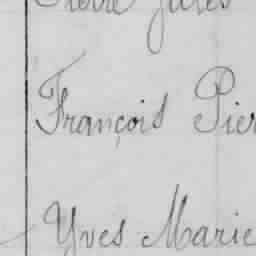 Pierre Jules
François Pier
Yves Marie